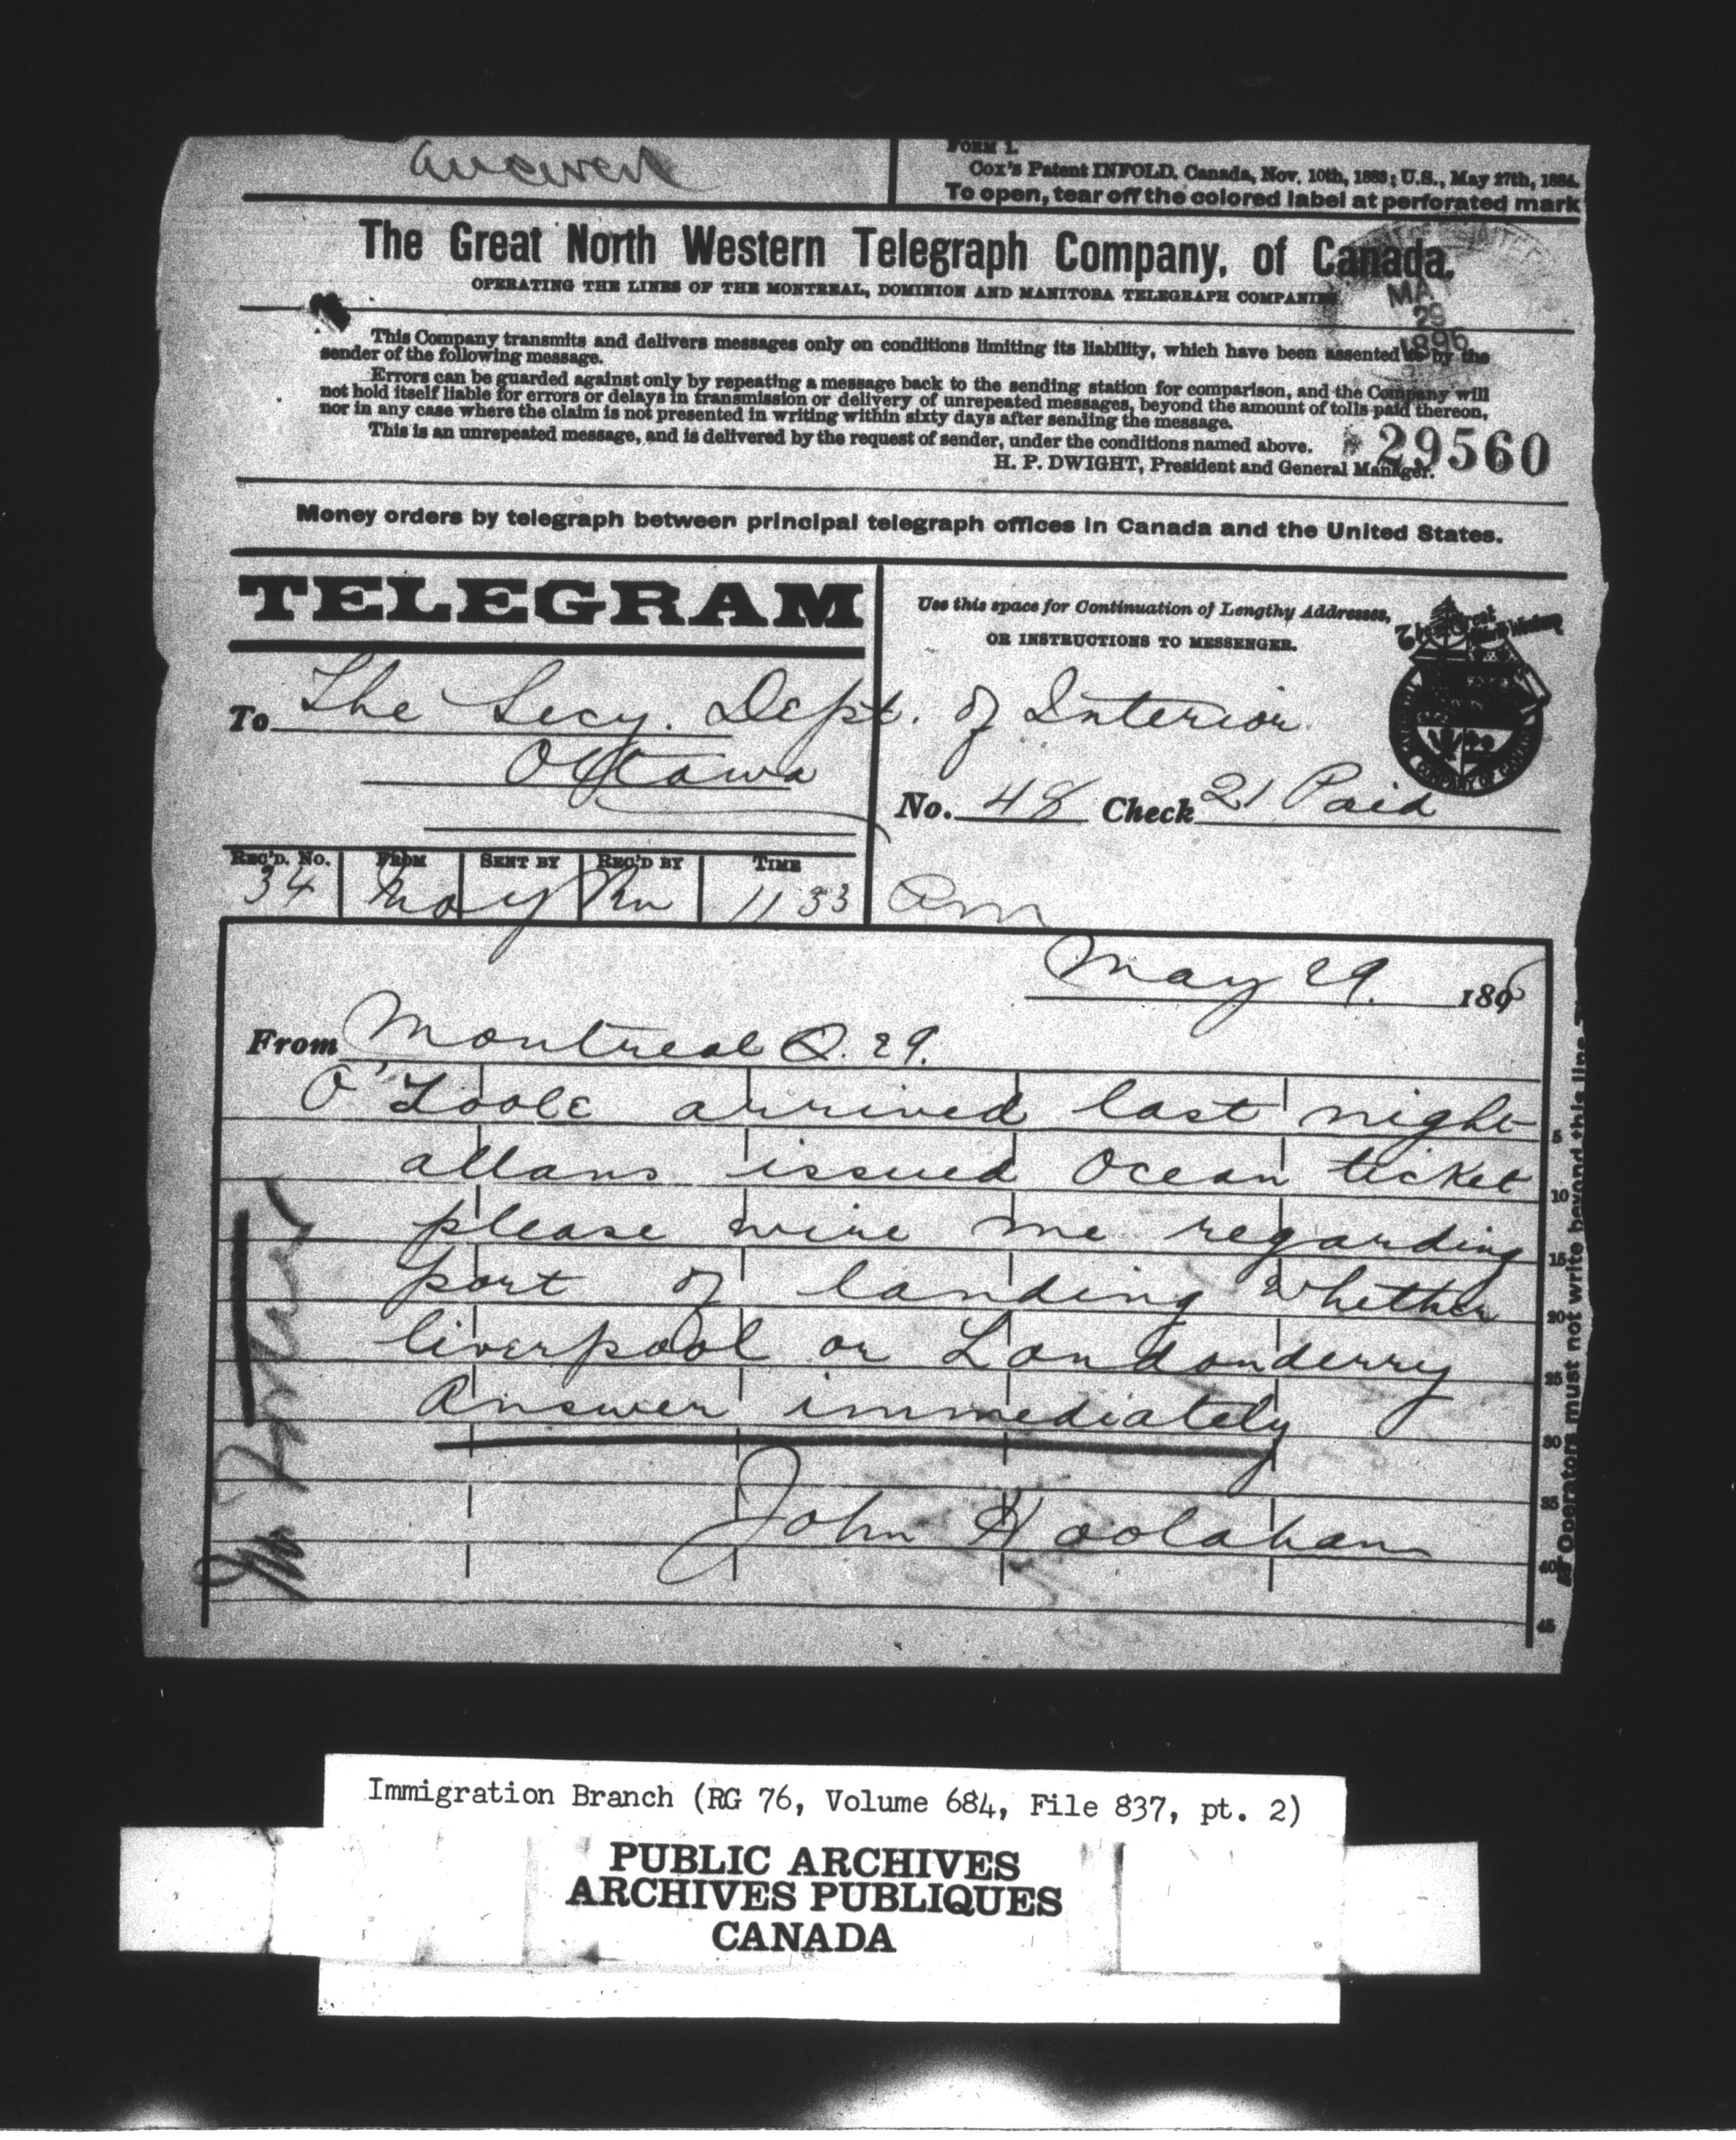 Answered
FORM 1.
Cox's Patent INFOLD. Canada, Nov. 10th, 1883; U.S., May 27th, 1884.
To open, tear off the colored label at perforated mark
The Great North Western Telegraph Company, of Canada.
OPERATING THE LINES OF THE MONTREAL, DOMINION AND MANITOBA TELEGRAPH COMPANIES
MA
29
1896
This Company transmits and delivers messages only on conditions limiting its liability, which have been assented to by the
sender of the following message.
Errors can be guarded against only by repeating a message back to the sending station for comparison, and the Company will
not hold itself liable for errors or delays in transmission or delivery of unrepeated messages, beyond the amount of tolls paid thereon,
nor in any case where the claim is not presented in writing within sixty days after sending the message.
This is an unrepeated message, and is delivered by the request of sender, under the conditions named above.
29560
H. P. DWIGHT, President and General Manager.
Money orders by telegraph between principal telegraph offices in Canada and the United States.
TELEGRAM
Use this space for Continuation of Lengthy Addresses,
OR INSTRUCTIONS TO MESSENGER.
The Great North Western
To The Secy. Dept. of Interior
Ottawa
No. 48 Check 21 Paid
REC'D. NO. FROM SENT BY REC'D BY TIME
34 11 33 am
May 29. 1896
From Montreal Q. 29.
O'Toole arrived last night
allans issued Ocean ticket
please wire me regarding
port of landing whether
liverpool or Londonderry
Answer immediately
John Hoolahan
5
10
15
20
25
30
35
40
45
Operators must not write beyond this line
Immigration Branch (RG 76, Volume 684, File 837, pt. 2)
PUBLIC ARCHIVES
ARCHIVES PUBLIQUES
CANADA